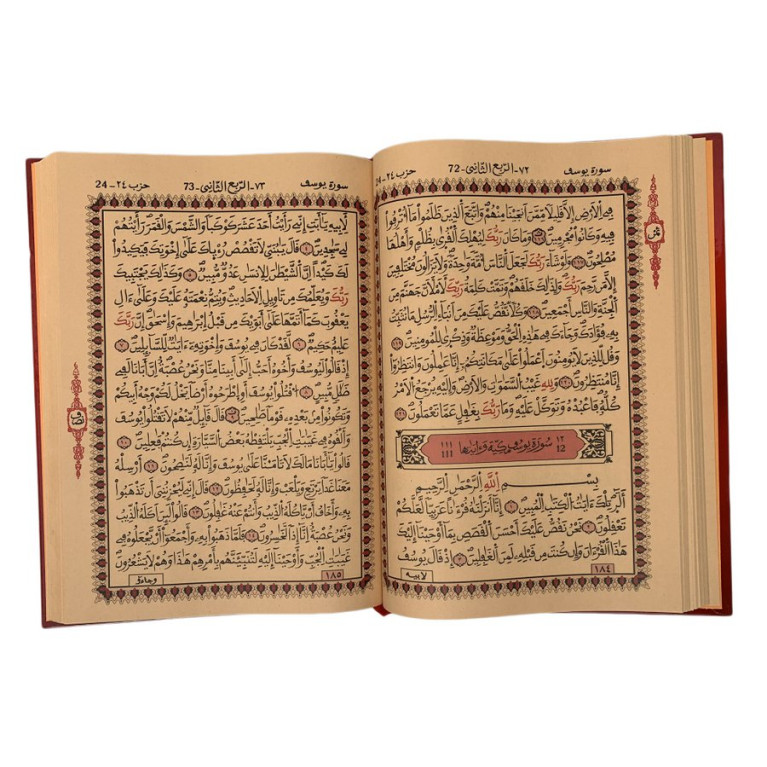 سورة يوسف ٧٢ - الربع الثاني - 72 حزب ٢٤ - 24
في الارض إلا قليلا ممن أنجينا منهم واتبع الذين ظلموا ما أترفوا
فيه وكانوا مجرمين وما كان ربك ليهلك القرى بظلم وأهلها
مصلحون ولو شاء ربك لجعل الناس أمة واحدة ولا يزالون مختلفين
إلا من رحم ربك ولذلك خلقهم وتمت كلمة ربك لأملأن جهنم من
الجنة والناس أجمعين وكلا نقص عليك من أنباء الرسل ما نثبت
به فؤادك وجاءك في هذه الحق وموعظة وذكرى للمومنين
وقل للذين لا يومنون اعملوا على مكانتكم إنا عاملون وانتظروا
إنا منتظرون ولله غيب السموات والارض وإليه يرجع الامر
كله فاعبده وتوكل عليه وما ربك بغافل عما تعملون
١٢ 12 سورة يوسف مكية وآياتها ١١١ 111
بسم الله الرحمن الرحيم
ألر تلك ءايات الكتاب المبين إنا أنزلناه قرءانا عربيا لعلكم
تعقلون نحن نقص عليك أحسن القصص بما أوحينا إليك
هذا القرءان وإن كنت من قبله لمن الغافلين إذ قال يوسف
١٨٤ لأبيه
سورة يوسف ٧٣ - الربع الثاني - 73 حزب ٢٤ - 24
لأبيه يا أبت إني رأيت أحد عشر كوكبا والشمس والقمر رأيتهم
لي ساجدين قال يا بني لا تقصص رءياك على إخوتك فيكيدوا
لك كيدا إن الشيطان للانسان عدو مبين وكذلك يجتبيك
ربك ويعلمك من تأويل الاحاديث ويتم نعمته عليك وعلى ءال
يعقوب كما أتمها على أبويك من قبل إبراهيم وإسحاق إن ربك
عليم حكيم لقد كان في يوسف وإخوته ءايات للسائلين
إذ قالوا ليوسف وأخوه أحب إلى أبينا منا ونحن عصبة إن أبانا لفي
ضلال مبين اقتلوا يوسف أو اطرحوه أرضا يخل لكم وجه أبيكم
وتكونوا من بعده قوما صالحين قال قائل منهم لا تقتلوا يوسف
وألقوه في غيابات الجب يلتقطه بعض السيارة إن كنتم فاعلين
قالوا يا أبانا ما لك لا تأمنا على يوسف وإنا له لناصحون أرسله
معنا غدا يرتع ويلعب وإنا له لحافظون قال إني ليحزنني أن تذهبوا
به وأخاف أن ياكله الذيب وأنتم عنه غافلون قالوا لئن اكله الذيب
ونحن عصبة إنا إذا لخاسرون فلما ذهبوا به وأجمعوا أن يجعلوه في
غيابات الجب وأوحينا إليه لتنبئنهم بأمرهم هذا وهم لا يشعرون
١٨٥ وجاءو